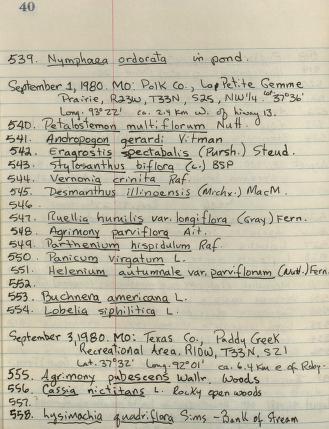 40
539. Nymphaea ordorata in pond.
September 1, 1980. MO: Polk Co., La Petite Gemme
Prairie, R23W, T33N, S25, NW¼ Lat. 37°36'
Long. 93°22' ca. 2.4 km w. of hiway 13.
540. Petalostemon multiflorum Nutt.
541. Andropogon gerardi Vitman
542. Eragrostis spectabalis (Pursh.) Steud.
543. Stylosanthus biflora (L.) BSP
544. Vernonia crinita Raf.
545. Desmanthus illinoensis (Michx.) MacM.
546.
547. Ruellia humilis var. longiflora (Gray) Fern.
548. Agrimony parviflora Ait.
549. Parthenium hispidulum Raf.
550. Panicum virgatum L.
551. Helenium autumnale var. parviflorum (Nutt.) Fern.
552.
553. Buchnera americana L.
554. Lobelia siphilitica L.
September 3, 1980. MO: Texas Co., Paddy Creek
Recreational Area. R10W, T33N, S21
Lat. 37°32' Long. 92°01' ca. 6.4 km e of Roby.
555. Agrimony pubescens Wallr. Woods
556. Cassia nictitans L. Rocky open woods
557.
558. Lysimachia quadriflora Sims - Bank of Stream